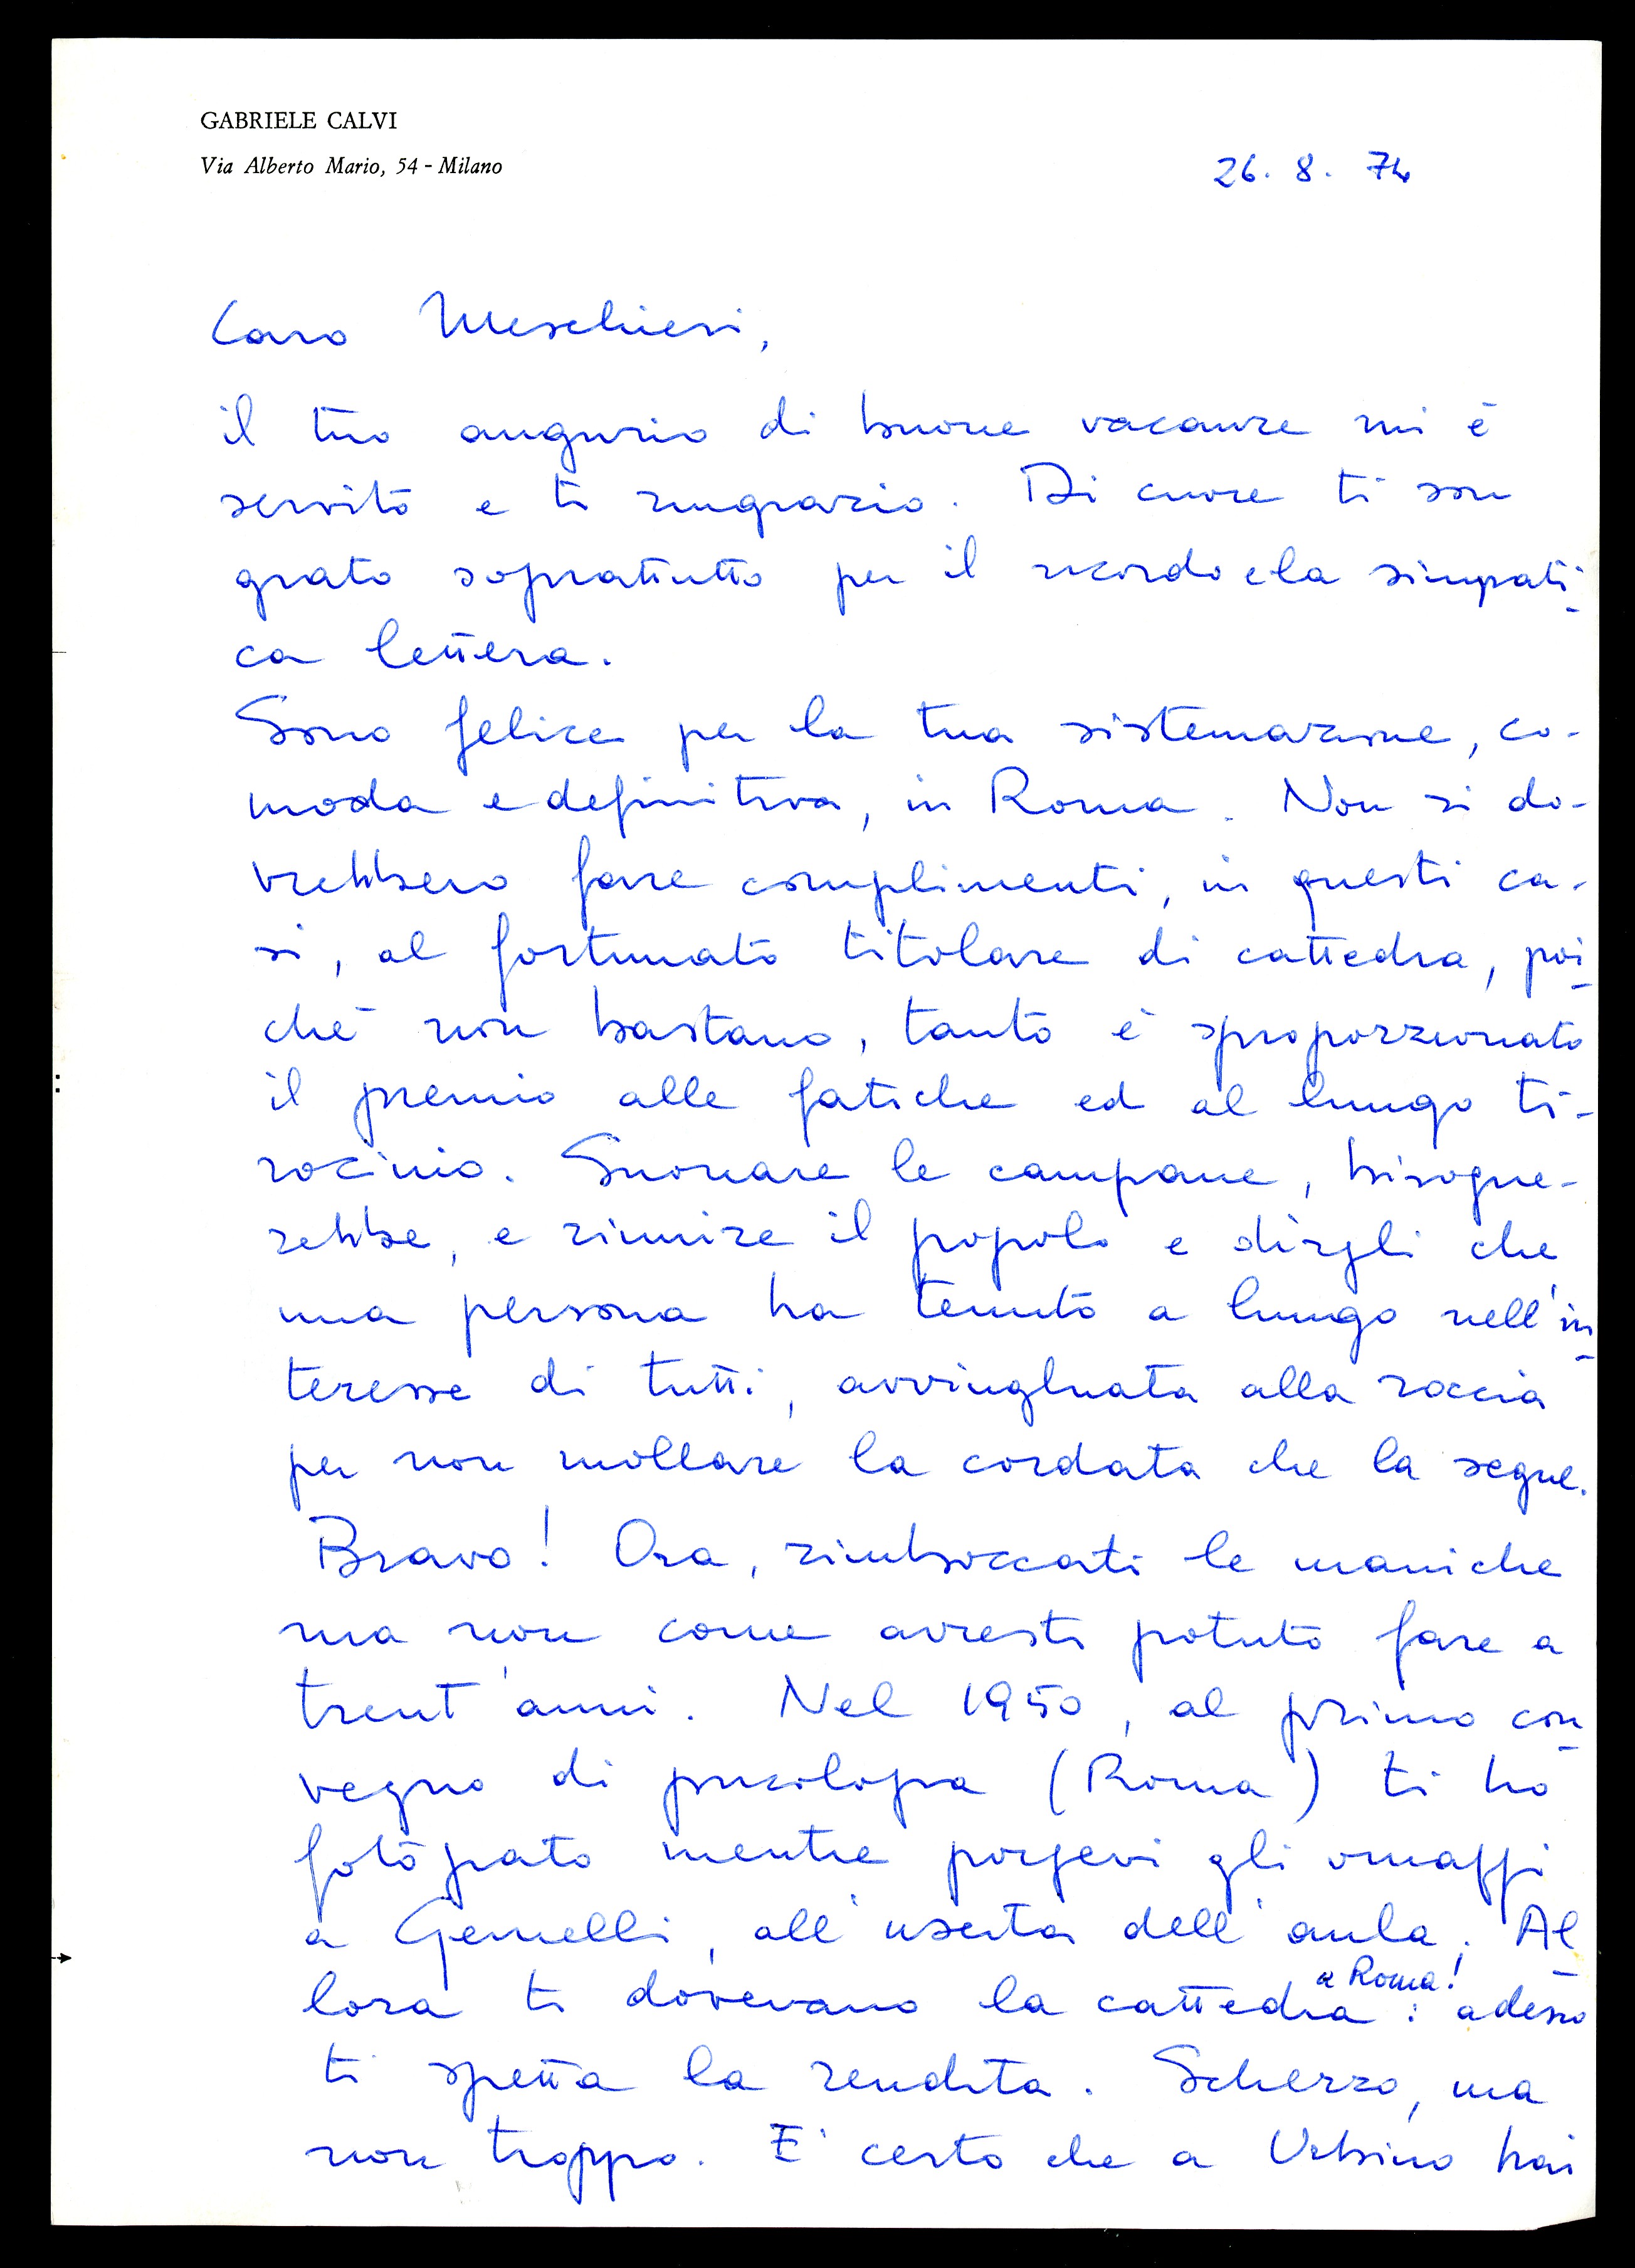 GABRIELE CALVI
Via Alberto Mario, 54 - Milano
26. 8. 74
Caro Meschieri,
il tuo augurio di buone vacanze mi è
servito e ti ringrazio. Di cuore ti son
grato soprattutto per il ricordo e la simpati-
ca lettera.
Sono felice per la tua sistemazione, co-
moda e definitiva, in Roma. Non si do-
vrebbero fare complimenti, in questi ca-
si, al fortunato titolare di cattedra, poi-
chè non bastano, tanto è sproporzionato
il premio alle fatiche ed al lungo ti-
rocinio. Suonare le campane, bisogne-
rebbe, e riunire il popolo e dirgli che
una persona ha tenuto a lungo nell'in-
teresse di tutti, avvinghiata alla roccia
per non mollare la cordata che la segue.
Bravo! Ora, rimboccati le maniche
ma non come avresti potuto fare a
trent'anni. Nel 1950, al primo con-
vegno di psicologia (Roma) ti ho
fotografato mentre porgevi gli omaggi
a Gemelli, all'uscita dell'aula. Al-
lora ti dovevano la cattedra a Roma! : adesso
ti spetta la rendita. Scherzo, ma
non troppo. E' certo che a Urbino hai